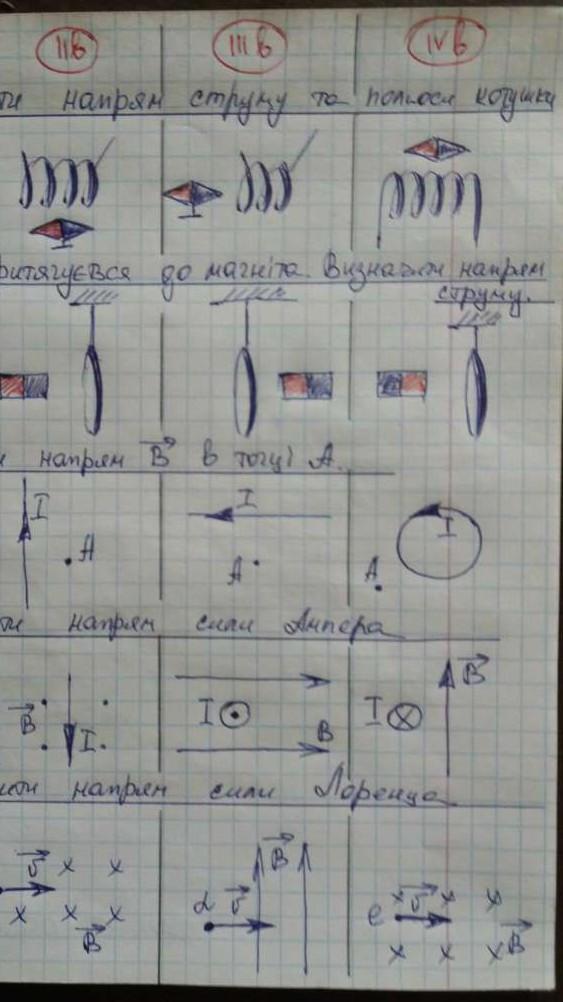 IIв IIIв IVв
ти напрям струму та полюси котушки
ритягується до магніта. Визначити напрям
струму.
и напрям B в точці А.
I I I
А А А
ти напрям сили Ампера
B I I B I B
ити напрям сили Лоренца
v B α v B e v B